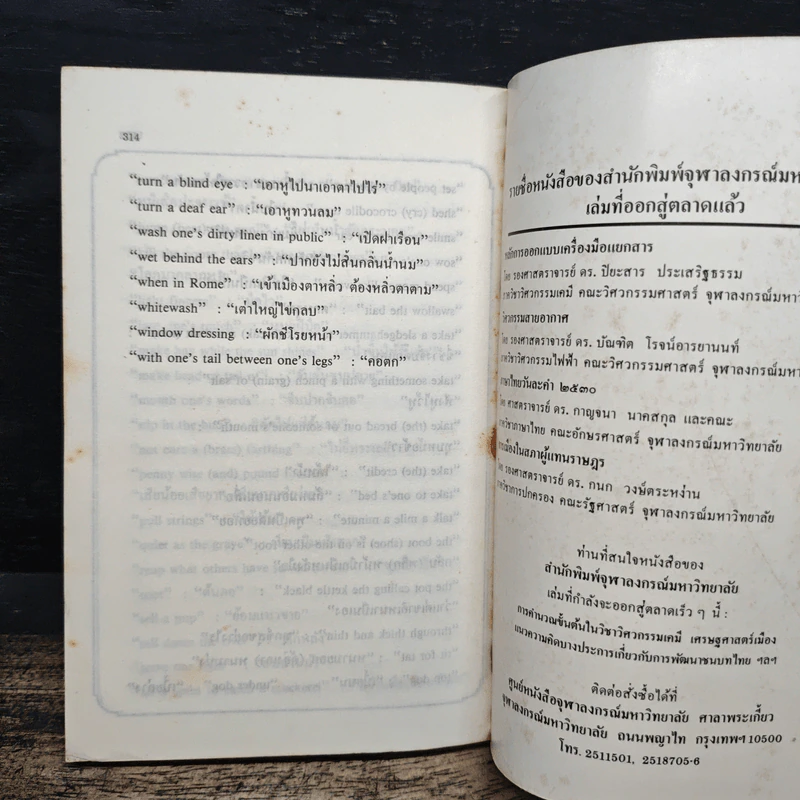 314
“turn a blind eye : “เอาหูไปนาเอาตาไปไร่”
“turn a deaf ear” : “เอาหูทวนลม”
“wash one's dirty linen in public” : “เปิดฝาเรือน”
“wet behind the ears” : “ปากยังไม่สิ้นกลิ่นน้ำนม”
“when in Rome” : “เข้าเมืองตาหลิ่ว ต้องหลิ่วตาตาม”
“whitewash” : “เต่าใหญ่ไข่กลบ”
“window dressing : “ผักชีโรยหน้า”
“with one's tail between one's legs” : “คอตก”
รายชื่อหนังสือของสำนักพิมพ์จุฬาลงกรณ์มห
เล่มที่ออกสู่ตลาดแล้ว
หลักการออกแบบเครื่องมือแยกสาร
โดย รองศาสตราจารย์ ดร. ปิยะสาร ประเสริฐธรรม
ภาควิชาวิศวกรรมเคมี คณะวิศวกรรมศาสตร์ จุฬาลงกรณ์มหาวิ
วิศวกรรมสายอากาศ
โดย รองศาสตราจารย์ ดร. บัณฑิต โรจน์อารยานนท์
ภาควิชาวิศวกรรมไฟฟ้า คณะวิศวกรรมศาสตร์ จุฬาลงกรณ์มห
ภาษาไทยวันละคำ ๒๕๓๐
โดย ศาสตราจารย์ ดร. กาญจนา นาคสกุล และคณะ
ภาควิชาภาษาไทย คณะอักษรศาสตร์ จุฬาลงกรณ์มหาวิทยาลัย
เมืองในสภาผู้แทนราษฎร
โดย รองศาสตราจารย์ ดร. กนก วงษ์ตระหง่าน
ภาควิชาการปกครอง คณะรัฐศาสตร์ จุฬาลงกรณ์มหาวิทยาลัย
ท่านที่สนใจหนังสือของ
สำนักพิมพ์จุฬาลงกรณ์มหาวิทยาลัย
เล่มที่กำลังจะออกสู่ตลาดเร็ว ๆ นี้ :
การคำนวณขั้นต้นในวิชาวิศวกรรมเคมี เศรษฐศาสตร์เมือง
แนวความคิดบางประการเกี่ยวกับการพัฒนาชนบทไทย ฯลฯ
ติดต่อสั่งซื้อได้ที่
ศูนย์หนังสือจุฬาลงกรณ์มหาวิทยาลัย ศาลาพระเกี้ยว
จุฬาลงกรณ์มหาวิทยาลัย ถนนพญาไท กรุงเทพฯ 10500
โทร. 2511501, 2518705-6